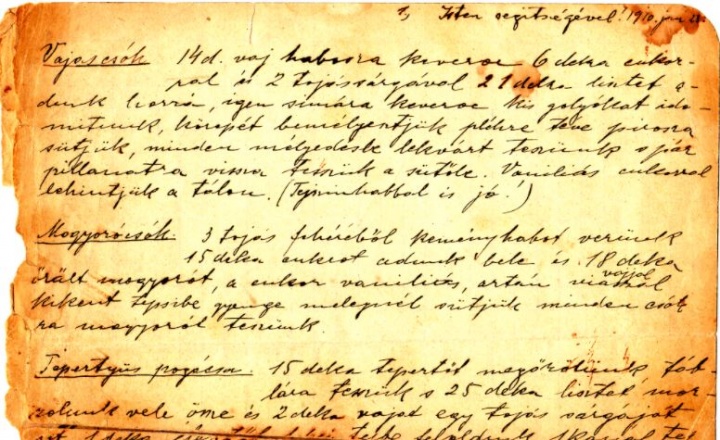 Isten segítségével! 1910. jan
Vajascsók 14 d. vaj habosra keverve 6 deka cukor-
ral és 2 tojássárgával 21 deka lisztet a-
dunk hozzá, igen simára keverve kis golyókat ido-
mítunk, közepét bemélyentjük plehre téve pirosra
sütjük, minden mélyedésbe lekvárt teszünk s pár
pillanatra vissza tesszük a sütőbe. Vaniliás cukorral
behintjük a tálon. (Tejszínhabbal is jó!)
Mogyorócsók. 3 tojás fehéréből keményhabot verünk
15 deka cukrot adunk bele és 18 deka
őrölt mogyorót, a cukor vaniliás, aztán vajjal
kikent tepsibe gyenge melegnél sütjük minden csók
ra mogyorót teszünk.
Tepertyűs pogácsa 15 deka tepertőt megőrölünk, táb-
lára teszünk s 25 deka lisztet mor-
zolunk vele öme és 2 deka vajat egy tojás sárgáját